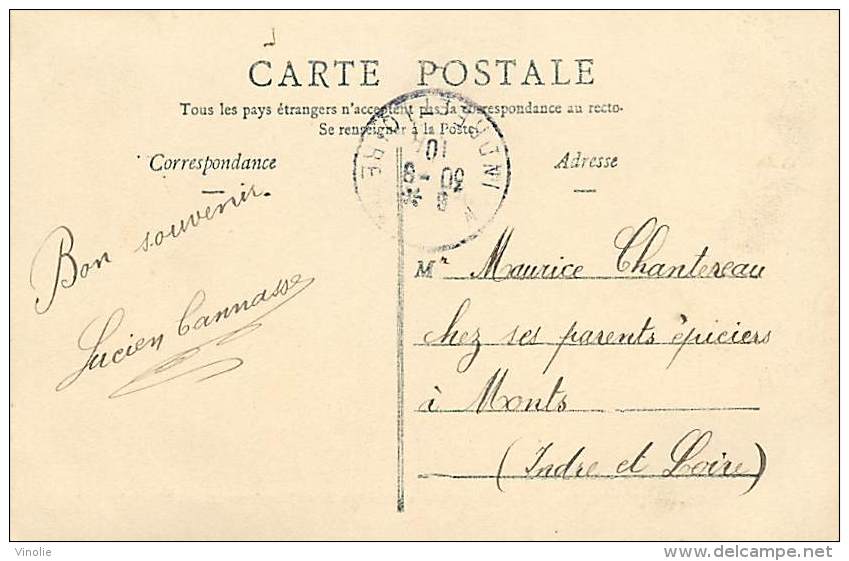 CARTE POSTALE
Tous les pays étrangers n'acceptent pas la correspondance au recto-
Se renseigner à la Poste
Correspondance
Adresse
INDRE ET LOIRE
Bon souvenir.
Lucien Cannasse
Mr Maurice Chantereau
chez ses parents épiciers
à Monts
(Indre et Loire)
Vinolie
http://www.delcampe.net